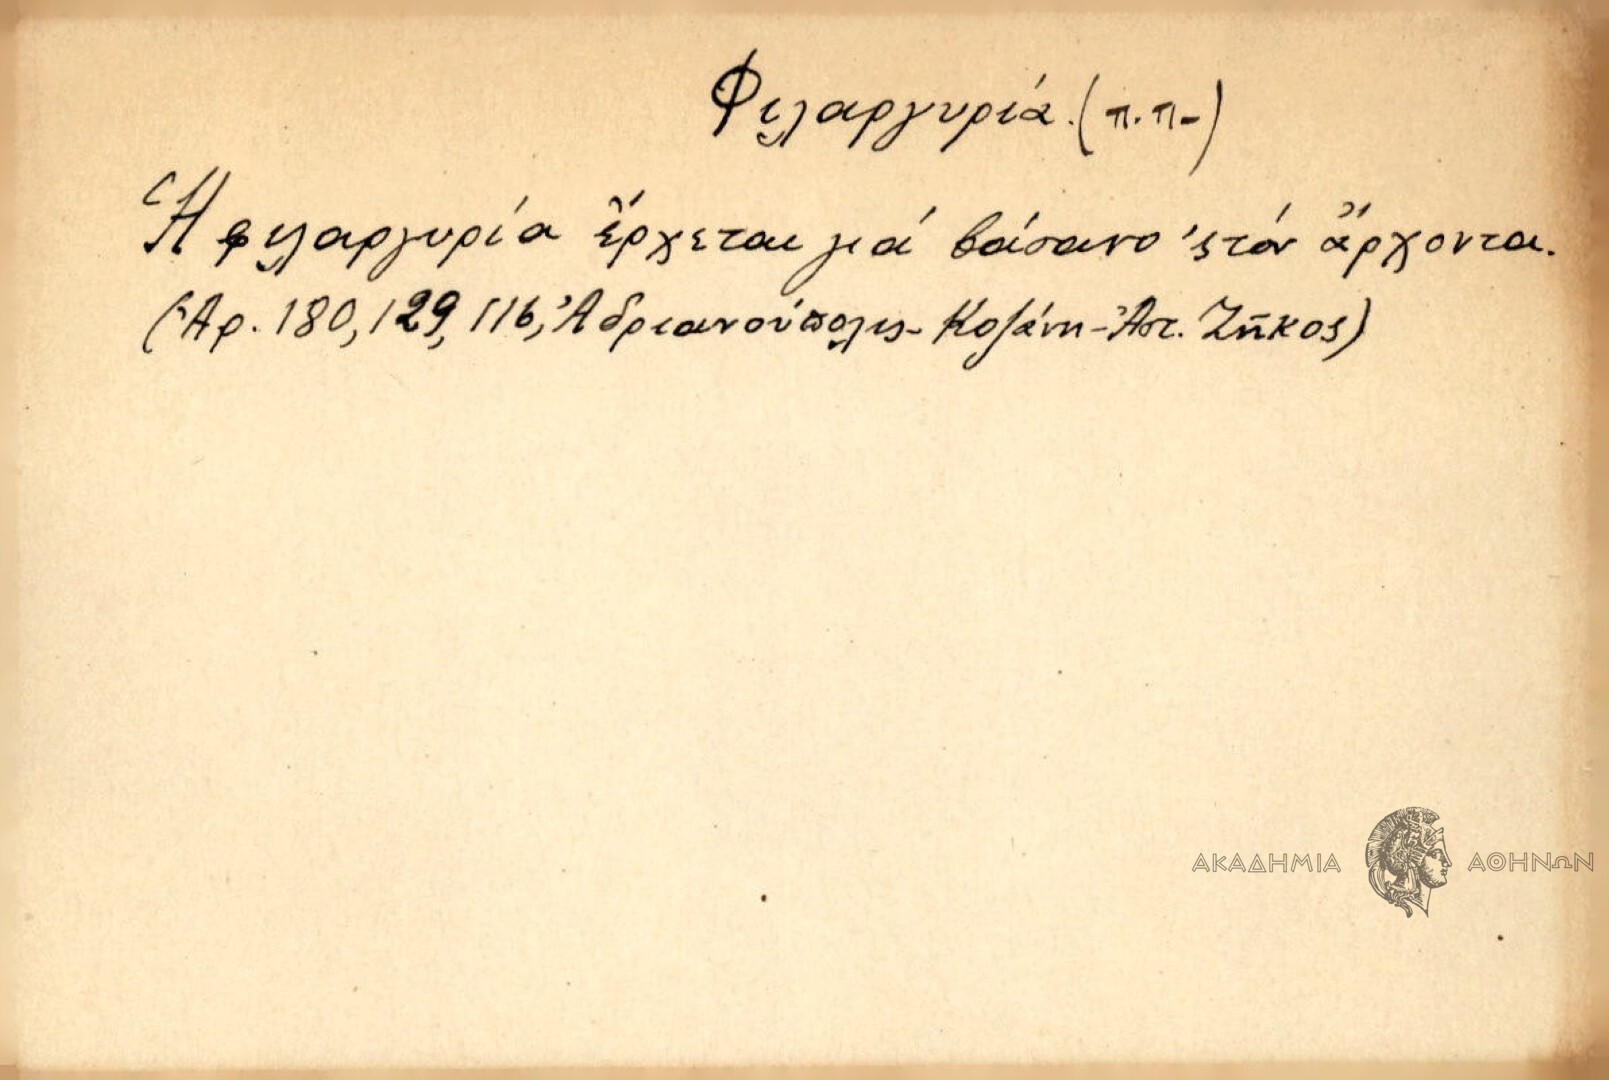 Φιλαργυρία. (π.π-)
Ἡ φιλαργυρία ἔρχεται γιά βάσανο 'ςτόν ἄρχοντα.
(Ἀρ. 180, 129, 116, Ἀδριανούπολις- Κοζάνη-Ἀπ. Ζῆκος)
ΑΚΑΔΗΜΙΑ ΑΘΗΝΩΝ